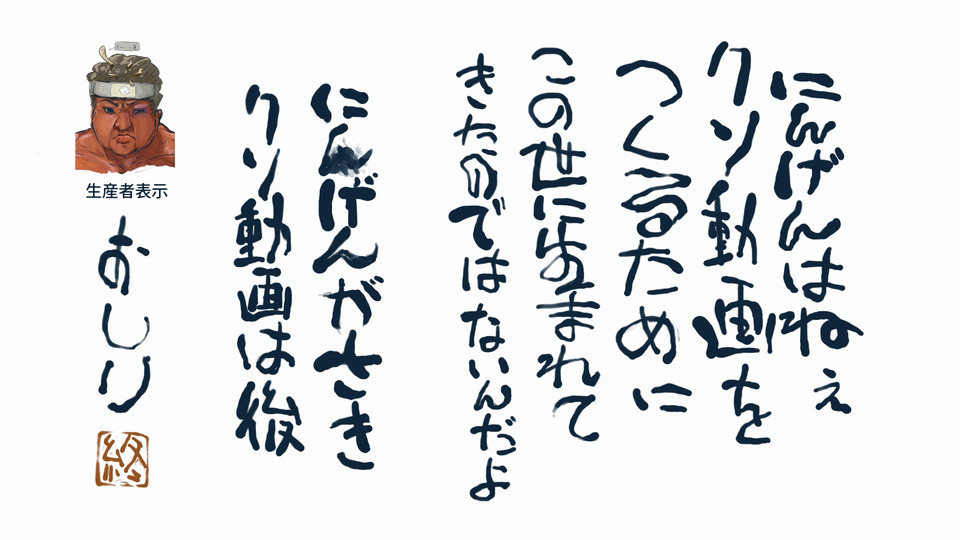 にんげんはねぇ
クソ動画を
つくるために
この世にうまれて
きたのではないんだよ
にんげんがさき
クソ動画は後
生産者表示
おしり
終